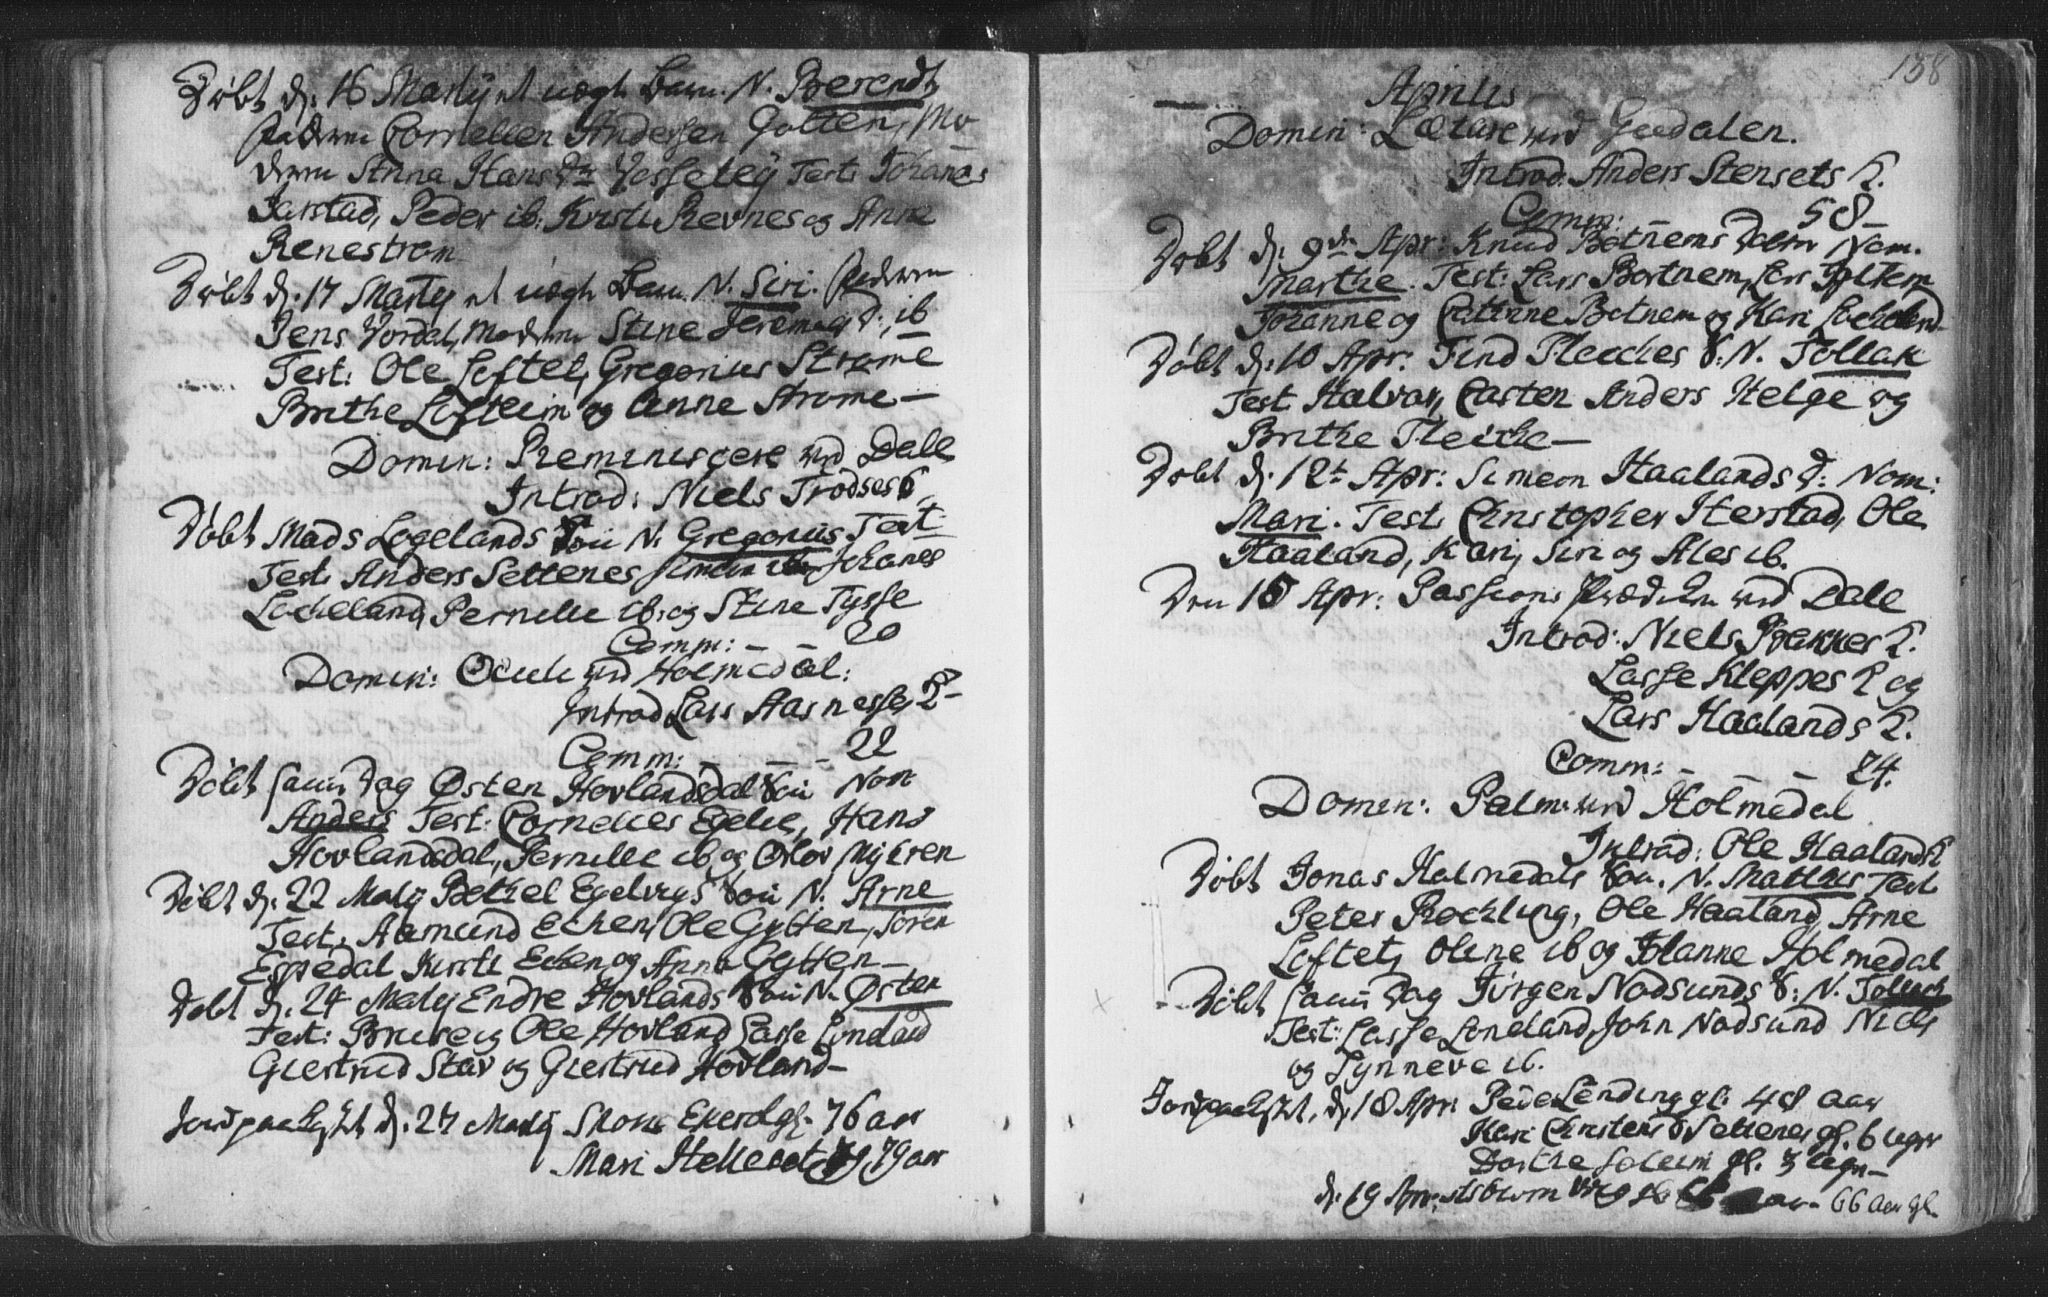 Døbt d: 16 Martij et uægt Barn. N. Berendt
Faderen Cornelles Andersen Gotten, Mo
deren Anna Hans Dtr Yssetey Test: Johanes
Jarstad, Peder ib: Kirsti Revnes og Anne
Renestrøm
Døbt d. 17 Martij et uægt Barn. N. Siri. Faderen
Jens Vordal, Moderen Stine Jeremiæ D:, ib
Test: Ole Loftet, Gregorius Strømē
Brithe Lofteim og Anne Strømē —
Domin: Reminiscere ved Dale
Introd: Niels Trodses K.
Døbt Mads Logelands Søn N. Gregorius Test
Test. Anders Settenes Simeon ib Johanes
Locheland, Pernille ib: og Stine Tysse
Comm: — — 20
Domin: Oculi ved Holmedal:
Introd Lars Aasnesses K —
Comm: — — — 22
Døbt samme Dag Østen Hovlandsdal Søn Nom
Anders Test: Cornelies Egelie, Hans
Hovlandsdal, Pernille ib og Olov Myhren
Døbt d. 22 Martij Bothel Egelvigs Søn N. Arne
Test. Aamund Echen, Ole Gytten, Søren
Espedal Kirsti Echen og Anna Gytten —
Døbt d. 24 Martij Endre Hovlands Søn N. Østen
Test: Ole Hovland Lasse Lindaas
Giertrud Stav og Giertrud Hovland —
Jordpaakastet d. 27 Martij Ekerd gl. 76 aar
Mari Hellesøt 79 aar
138
Aprilis
Domin: Lætare ved Guddalen.
Introd: Anders Stensets K.
Comm: 58 —
Døbt d. 9de Apr: Knud Botnems Datter Nom.
Marthe. Test: Lars Bortnem, Lars
Johanne og Catrinne Botnem og Kari Locheland
Døbt d. 10 Apr. Find Fleches S: N. Tollak
Test. Halvor, Carsten Anders Helge og
Brithe Fleche —
Døbt d. 12t Apr: Simeon Haalands D: Nom:
Mari. Test: Christopher Herstad, Ole
Haaland, Kari, Siri og Ales ib.
Den 15 Apr: Passions Prædiken ved Dale
Introd: Niels Bakkes K.
Lasse Kleppes K og
Lars Haalands K.
Comm: — — — 24.
Domin: Palm: ved Holmedal
Introd: Ole Haalands K
Døbt Jonas Holmedals Søn. N. Mathias Test
Peter Rechling, Ole Haaland, Arne
Loftet, Oline ib og Johanne Holmedal
Døbt samme Dag Jørgen Nodsunds S: N. Tollach
Test: Lasse Loneland, John Nodsund Niels
og Synneve ib.
Jordpaakastet, d. 18 Apr: Peder Lending gl. 48 aar
Kari Christens D Vettenes gl. 6 uger
Dorthe Soleim gl. 3 uger —
d. 19 Apr: 66 aar gl.